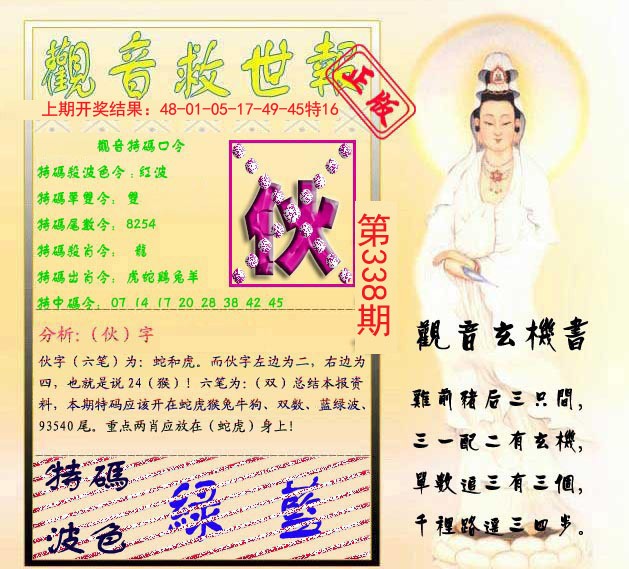 觀音救世報
正版
上期开奖结果：48-01-05-17-49-45特16
觀音特碼口令
特碼殺波色令：紅波
特碼單雙令：雙
特碼尾數令：8254
特碼殺肖令：龍
特碼出肖令：虎蛇鷄兔羊
特中碼令：07 14 17 20 28 38 42 45
伙
第338期
分析：（伙）字
伙字（六笔）为：蛇和虎。而伙字左边为二，右边为
四，也就是说24（猴）！六笔为：（双）总结本报资
料，本期特码应该开在蛇虎猴兔牛狗、双数、蓝绿波、
93540尾。重点两肖应放在（蛇虎）身上！
特碼
波色
綠 藍
觀音玄機書
雞前豬后三只間，
三一配二有玄機，
單數追三有三個，
千裡路遥三四步。